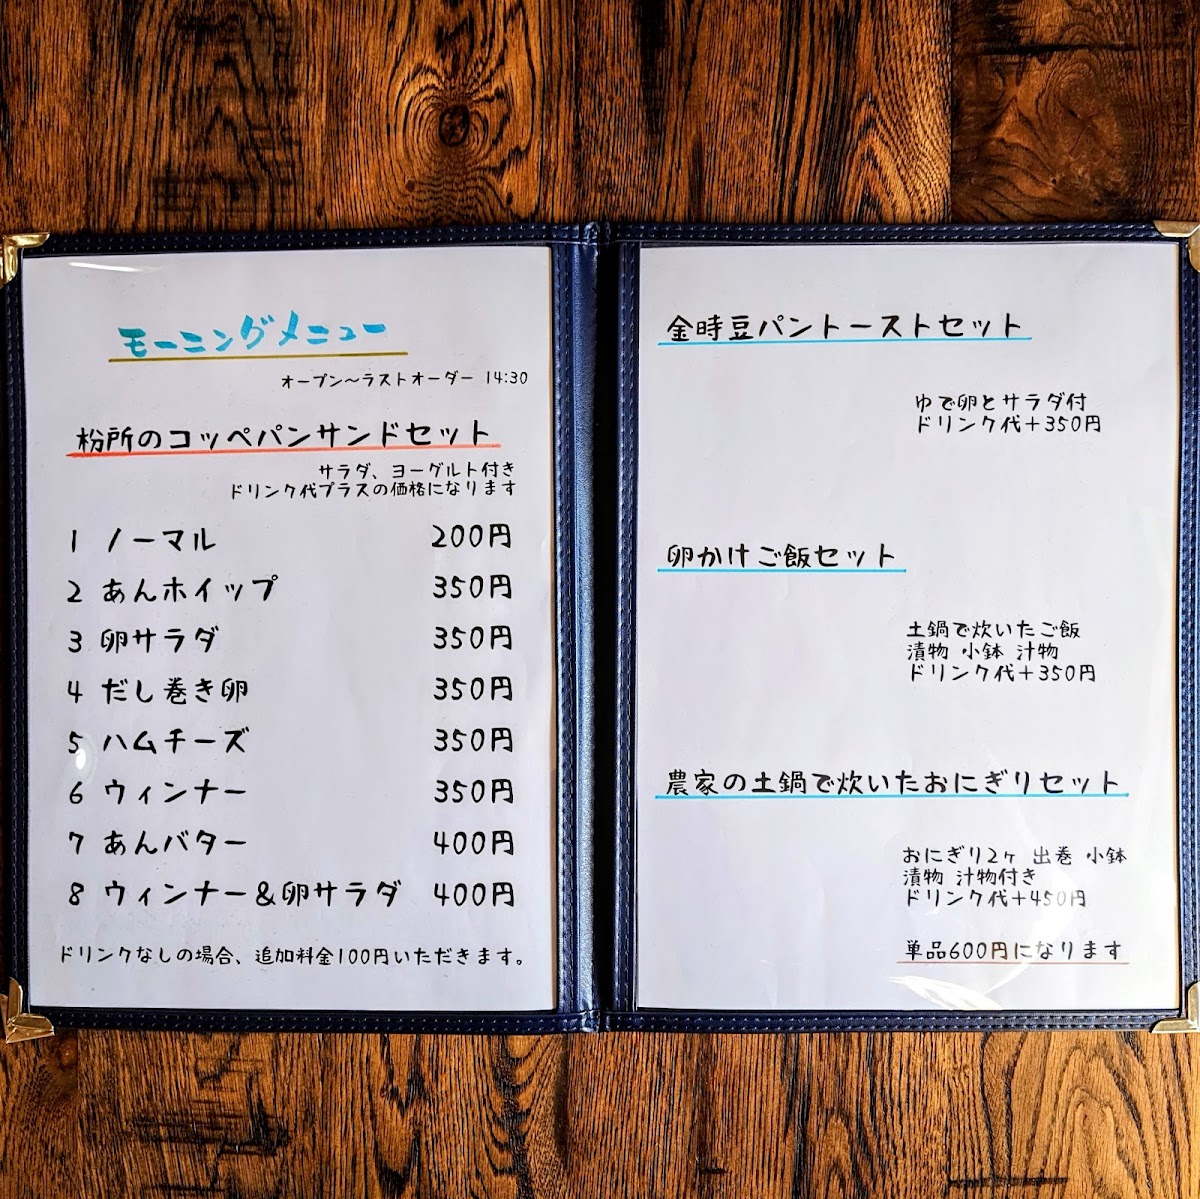 モーニングメニュー
オープン〜ラストオーダー 14:30
枌所のコッペパンサンドセット
サラダ、ヨーグルト付き
ドリンク代プラスの価格になります
1 ノーマル 200円
2 あんホイップ 350円
3 卵サラダ 350円
4 だし巻き卵 350円
5 ハムチーズ 350円
6 ウィンナー 350円
7 あんバター 400円
8 ウィンナー&卵サラダ 400円
ドリンクなしの場合、追加料金100円いただきます。
金時豆パントーストセット
ゆで卵とサラダ付
ドリンク代+350円
卵かけご飯セット
土鍋で炊いたご飯
漬物 小鉢 汁物
ドリンク代+350円
農家の土鍋で炊いたおにぎりセット
おにぎり2ヶ 出巻 小鉢
漬物 汁物付き
ドリンク代+450円
単品600円になります